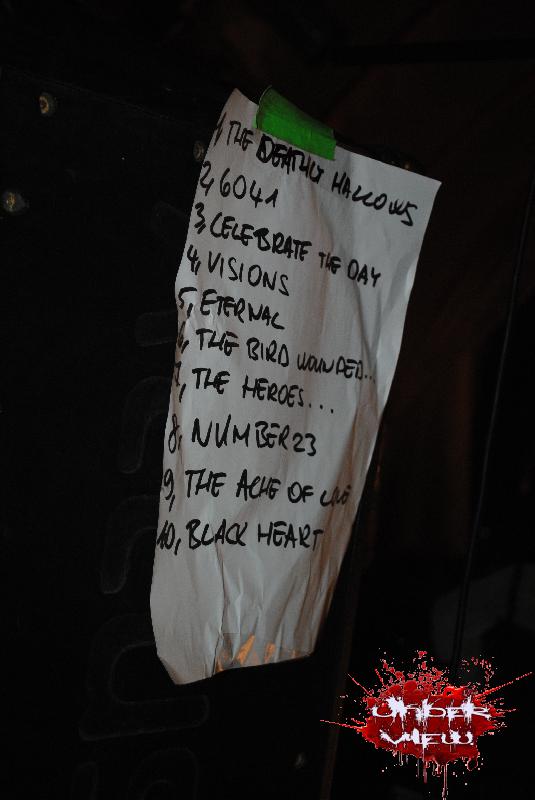 1, THE DEATHLY HALLOWS
2, 6041
3, CELEBRATE THE DAY
4, VISIONS
5, ETERNAL
6, THE BIRD WOUNDED...
7, THE HEROES...
8, NUMBER 23
9, THE ACHE OF LIFE
10, BLACK HEART
UNDER
VIEW